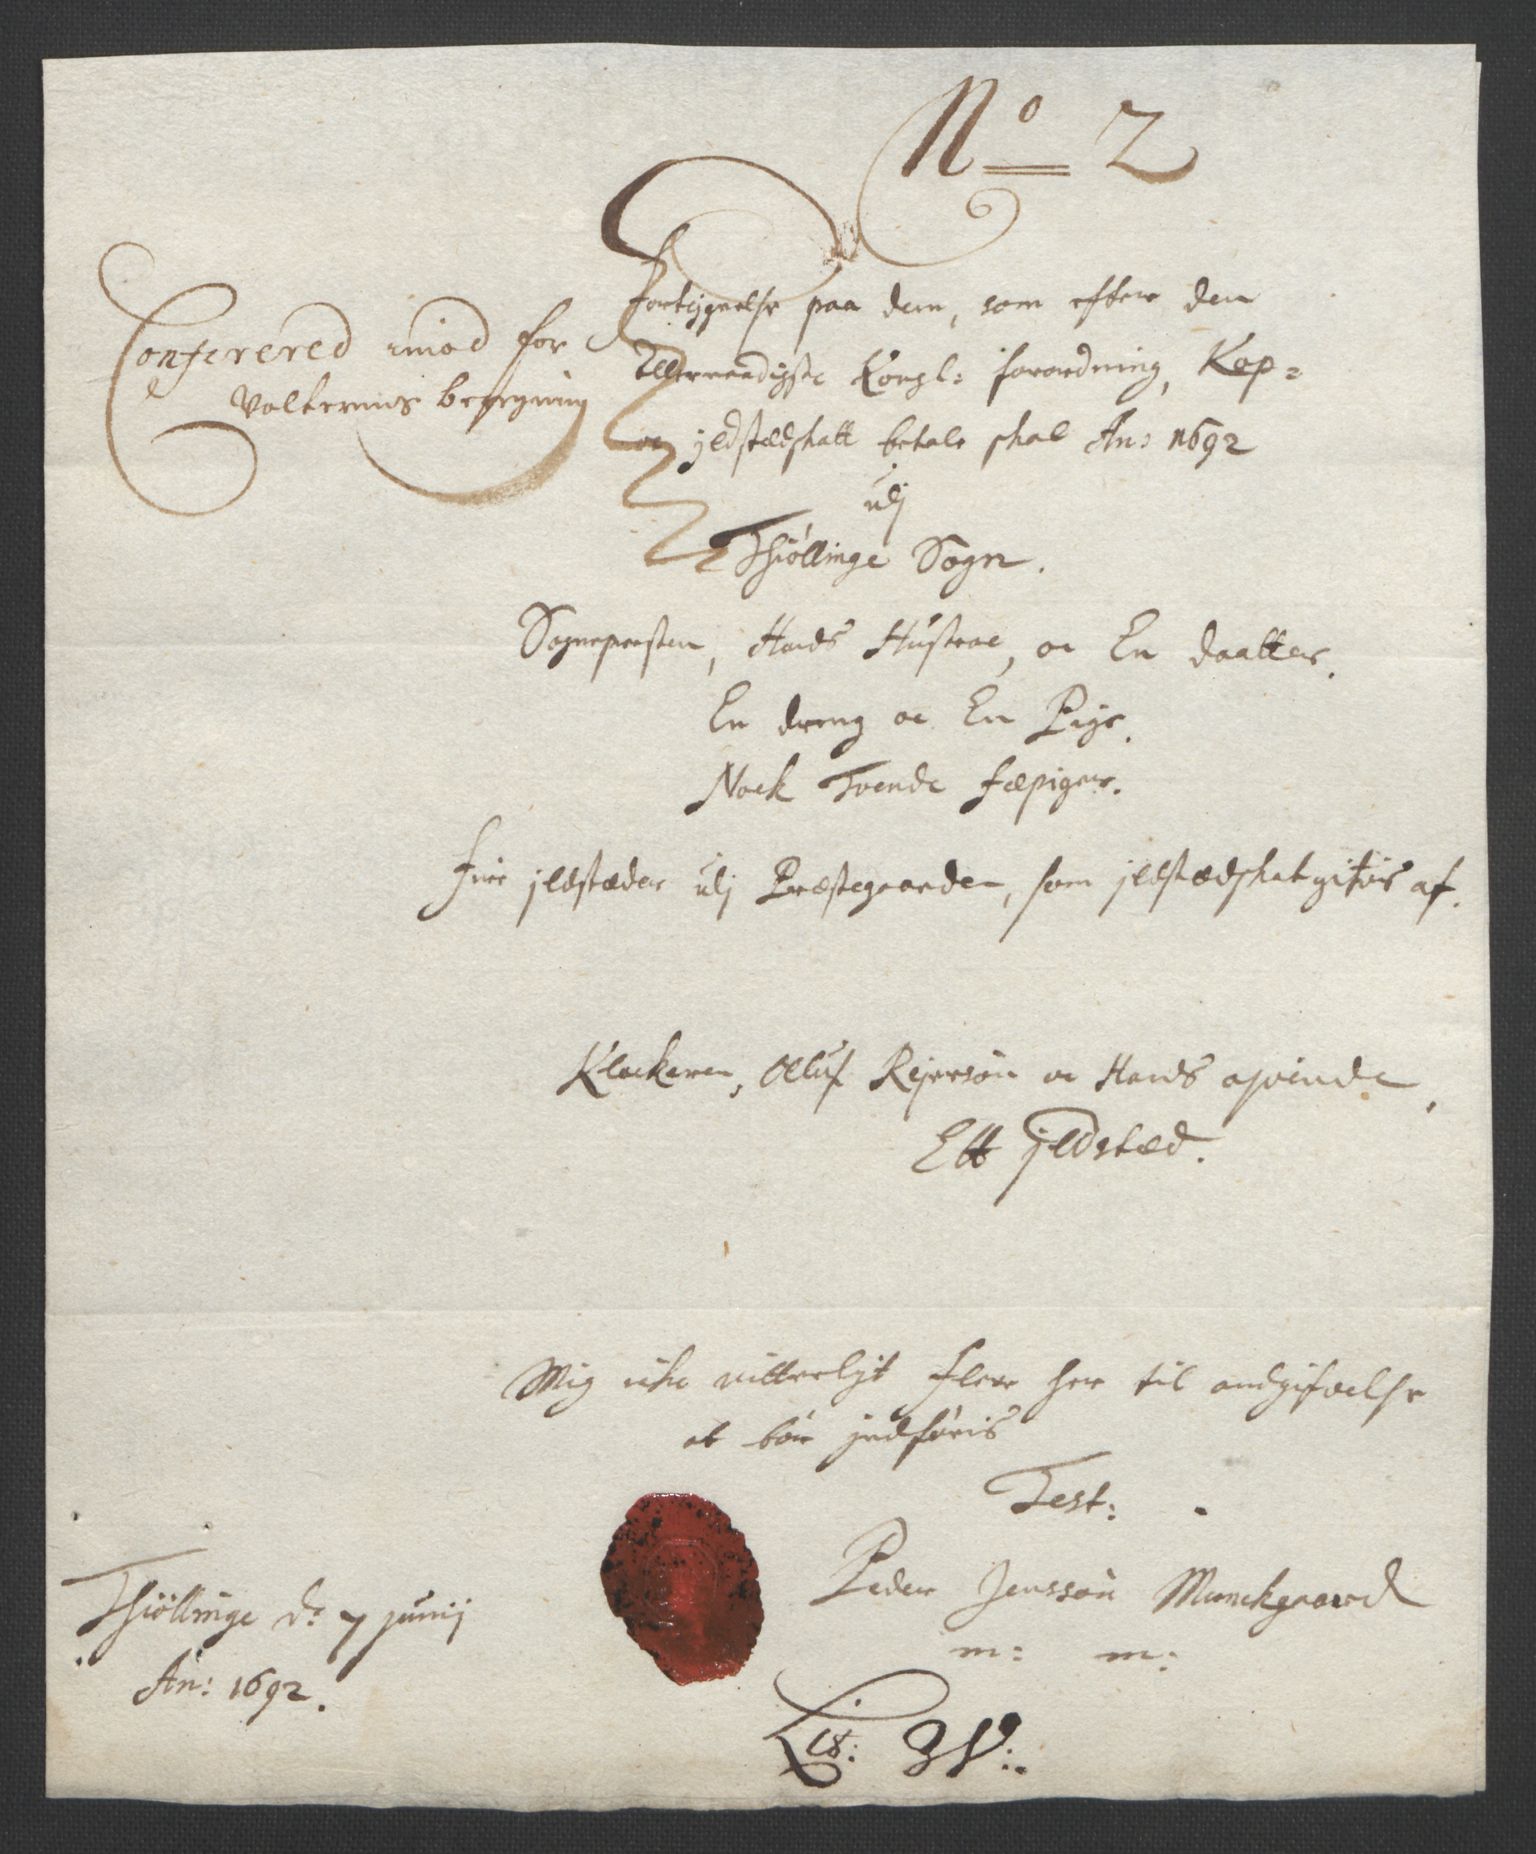 No 2
Conferered imod for
Valterens beregning
Fortegnelse paa dem, som efter den
Allernaadigste Kongl: forordning, Kop=
oc jldstædskatt betale skal An: 1692
udj
Thiøllinge Sogn.
Sognepresten, Hands Hustroe, oc En daatter.
En dreng oc En Pige.
Nock Tvende fæpiger.
Fire jldstæder udj Præstegaarden, som jldstædskat gifvis af.
Klockeren, Olluf Rejersøn oc Hands qvinde,
Ett jldstæd.
Mig icke vitterligt flere her til andgifvelse
at bør jndføris
Test:
Peder Jenssøn Munckgaard
m: m:
Thiøllinge d: 7 junij
An: 1692.
Lit: